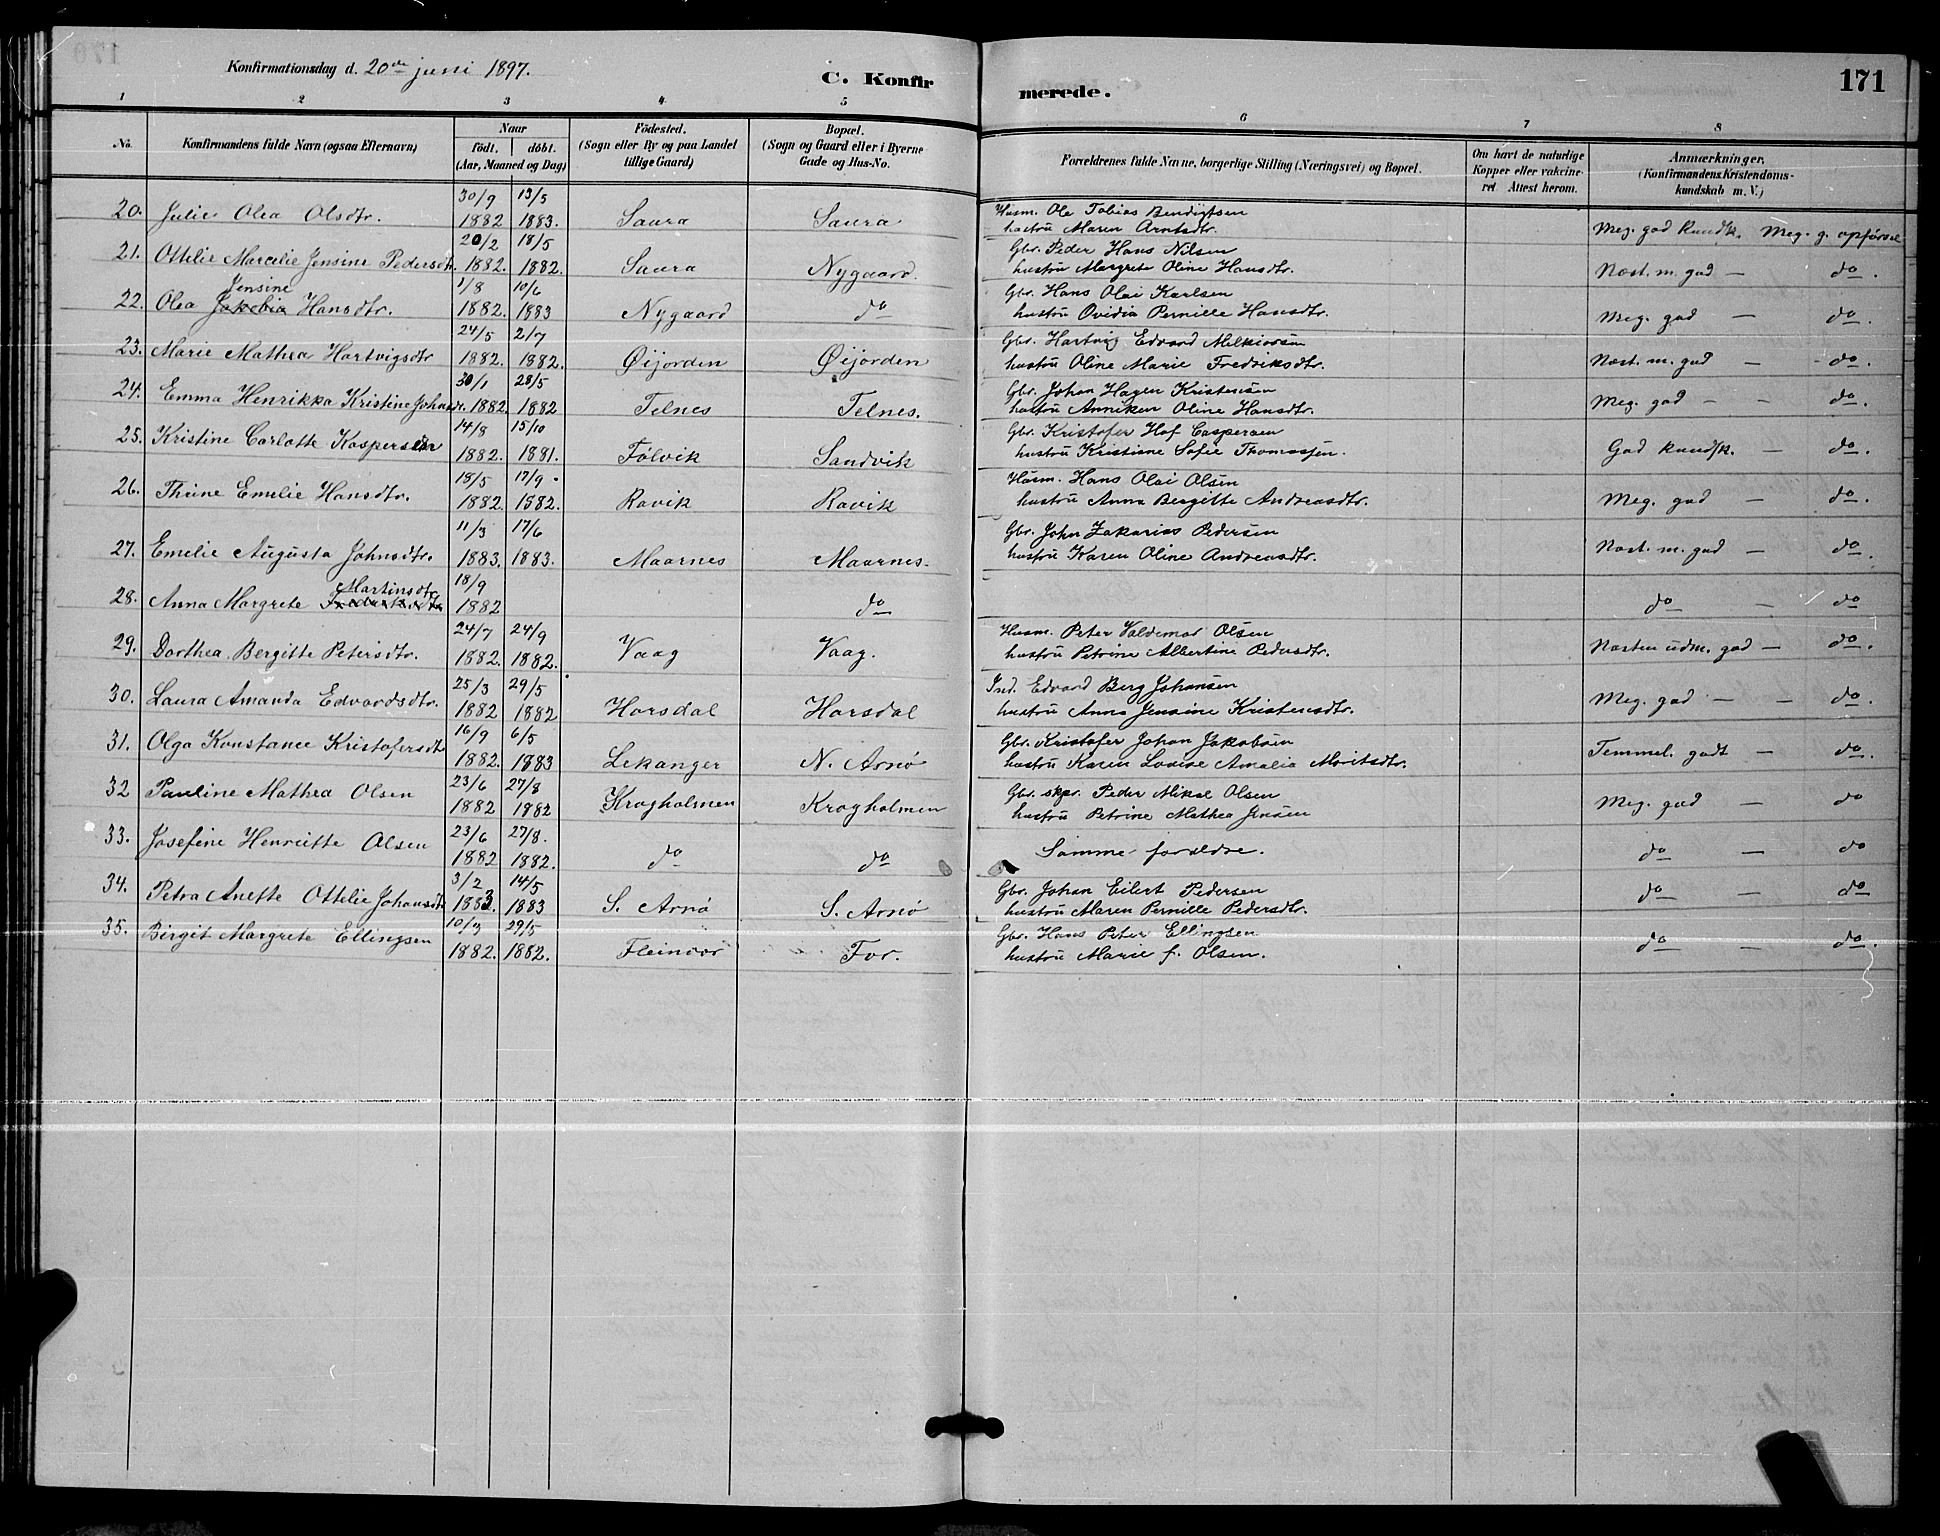 Konfirmationsdag d. 20de juni 1897.
C. Konfirmerede.
171
1 2 3 4. 5 6 7 8
No. Konfirmandens fulde Navn (ogsaa Efternavn) Naar födt. döbt. (Aar, Maaned og Dag) Födested. (Sogn eller By og paa Landet tillige Gaard) Bopæl. (Sogn og Gaard eller i Byerne Gade og Hus-No. Forældrenes fulde Navne, borgerlige Stilling (Næringsvei) og Bopæl. Om havt de naturlige Kopper eller vakcineret. Attest herom. Anmærkninger. (Konfirmandens Kristendomskundskab m. V.)
20. Julie Olea Olsdtr. 30/9 1882 13/5 1883. Saura Saura Husm. Ole Tobias Bendigtsen
hustru Maren Arntsdtr. Meg. god kundsk. Meg. g. opførsel
21. Ottilie Marcelie Jensine Pedersdtr. 20/2 1882. 18/5 1882. Saura Nygaard. Gbr. Peder Hans Nilsen
hustru Margrete Oline Hansdtr. Næst. m. god — do.
22. Olea Jakobia Jensine Hansdtr. 1/8 1882. 10/6 1883 Nygaard do Gbr. Hans Olai Karlsen
hustru Ovidia Pernille Hansdtr. Meg. god — do.
23. Marie Mathea Hartvigsdtr 24/5 1882. 2/7 1882. Øijorden Øijorden Gbr. Hartvig Edvard Melkiorsen
hustru Oline Marie Fredriksdtr. Næst. m. god — do.
24. Emma Henrikka Kristine Johansdtr. 30/1 1882. 28/5 1882 Telnes Telnes. Gbr. Johan Hagen Kristensen
hustru Anniken Oline Hansdtr. Meg. god — — do.
25. Kristine Carlotte Kaspersen 14/8 1882. 15/10 1881. Følvik Sandvik Gbr. Kristofer Hof Caspersen
hustru Kristiane Sofie Thomassen. God kundsk. — do.
26. Thine Emelie Hansdtr. 18/5 1882. 17/9. 1882. Ravik Ravik Husm. Hans Olai Olsen
hustru Anna Bergitte Andreasdtr. Meg. god — do.
27. Emelie Augusta Johnsdtr. 11/3 1883. 17/6 1883. Maarnes Maarnes. Gbr. John Zakarias Pedersen
hustru Karen Oline Andreasdtr. Næst. m. god — do.
28. Anna Margrete Martinsdtr 18/9 1882 do do — do
29. Dorthea Bergitte Petersdtr. 24/7 1882. 24/9 1882. Vaag Vaag. Husm. Peter Valdemar Olsen
hustru Petrine Albertine Pedersdtr. Næsten udm. god — do.
30. Laura Amanda Edvardsdtr. 25/3 1882 29/5 1882 Horsdal Horsdal Ind. Edvard Berg Johansen
hustru Anna Jensine Kristensdtr. Meg. god — — do.
31. Olga Konstance Kristofersdtr 16/9 1882. 6/5 1883 Lekanger N. Arnø Gbr. Kristofer Johan Jakobsen
hustru Karen Lovise Amalia Moritsdtr. Temmel. godt — do.
32 Pauline Mathea Olsen 23/6 1882 27/8 1882 Krogholmen Krogholmen Gbr. skpr. Peder Mikal Olsen
hustru Petrine Mathea Jensen Meg. god — do
33. Josefine Henriette Olsen 23/6 1882 27/8. 1882. do do Samme forældre. do — do
34. Petra Anette Ottilie Johansdtr 3/2 1883. 14/5 1883 S. Arnø S. Arnø Gbr. Johan Eilert Pedersen
hustru Maren Pernille Pedersdtr. do — do
35. Birgit Margrete Ellingsen 10/3 1882. 29/5 1882. Fleinvær For. Gbr. Hans Peter Ellingsen
hustru Marie f. Olsen. do — do.